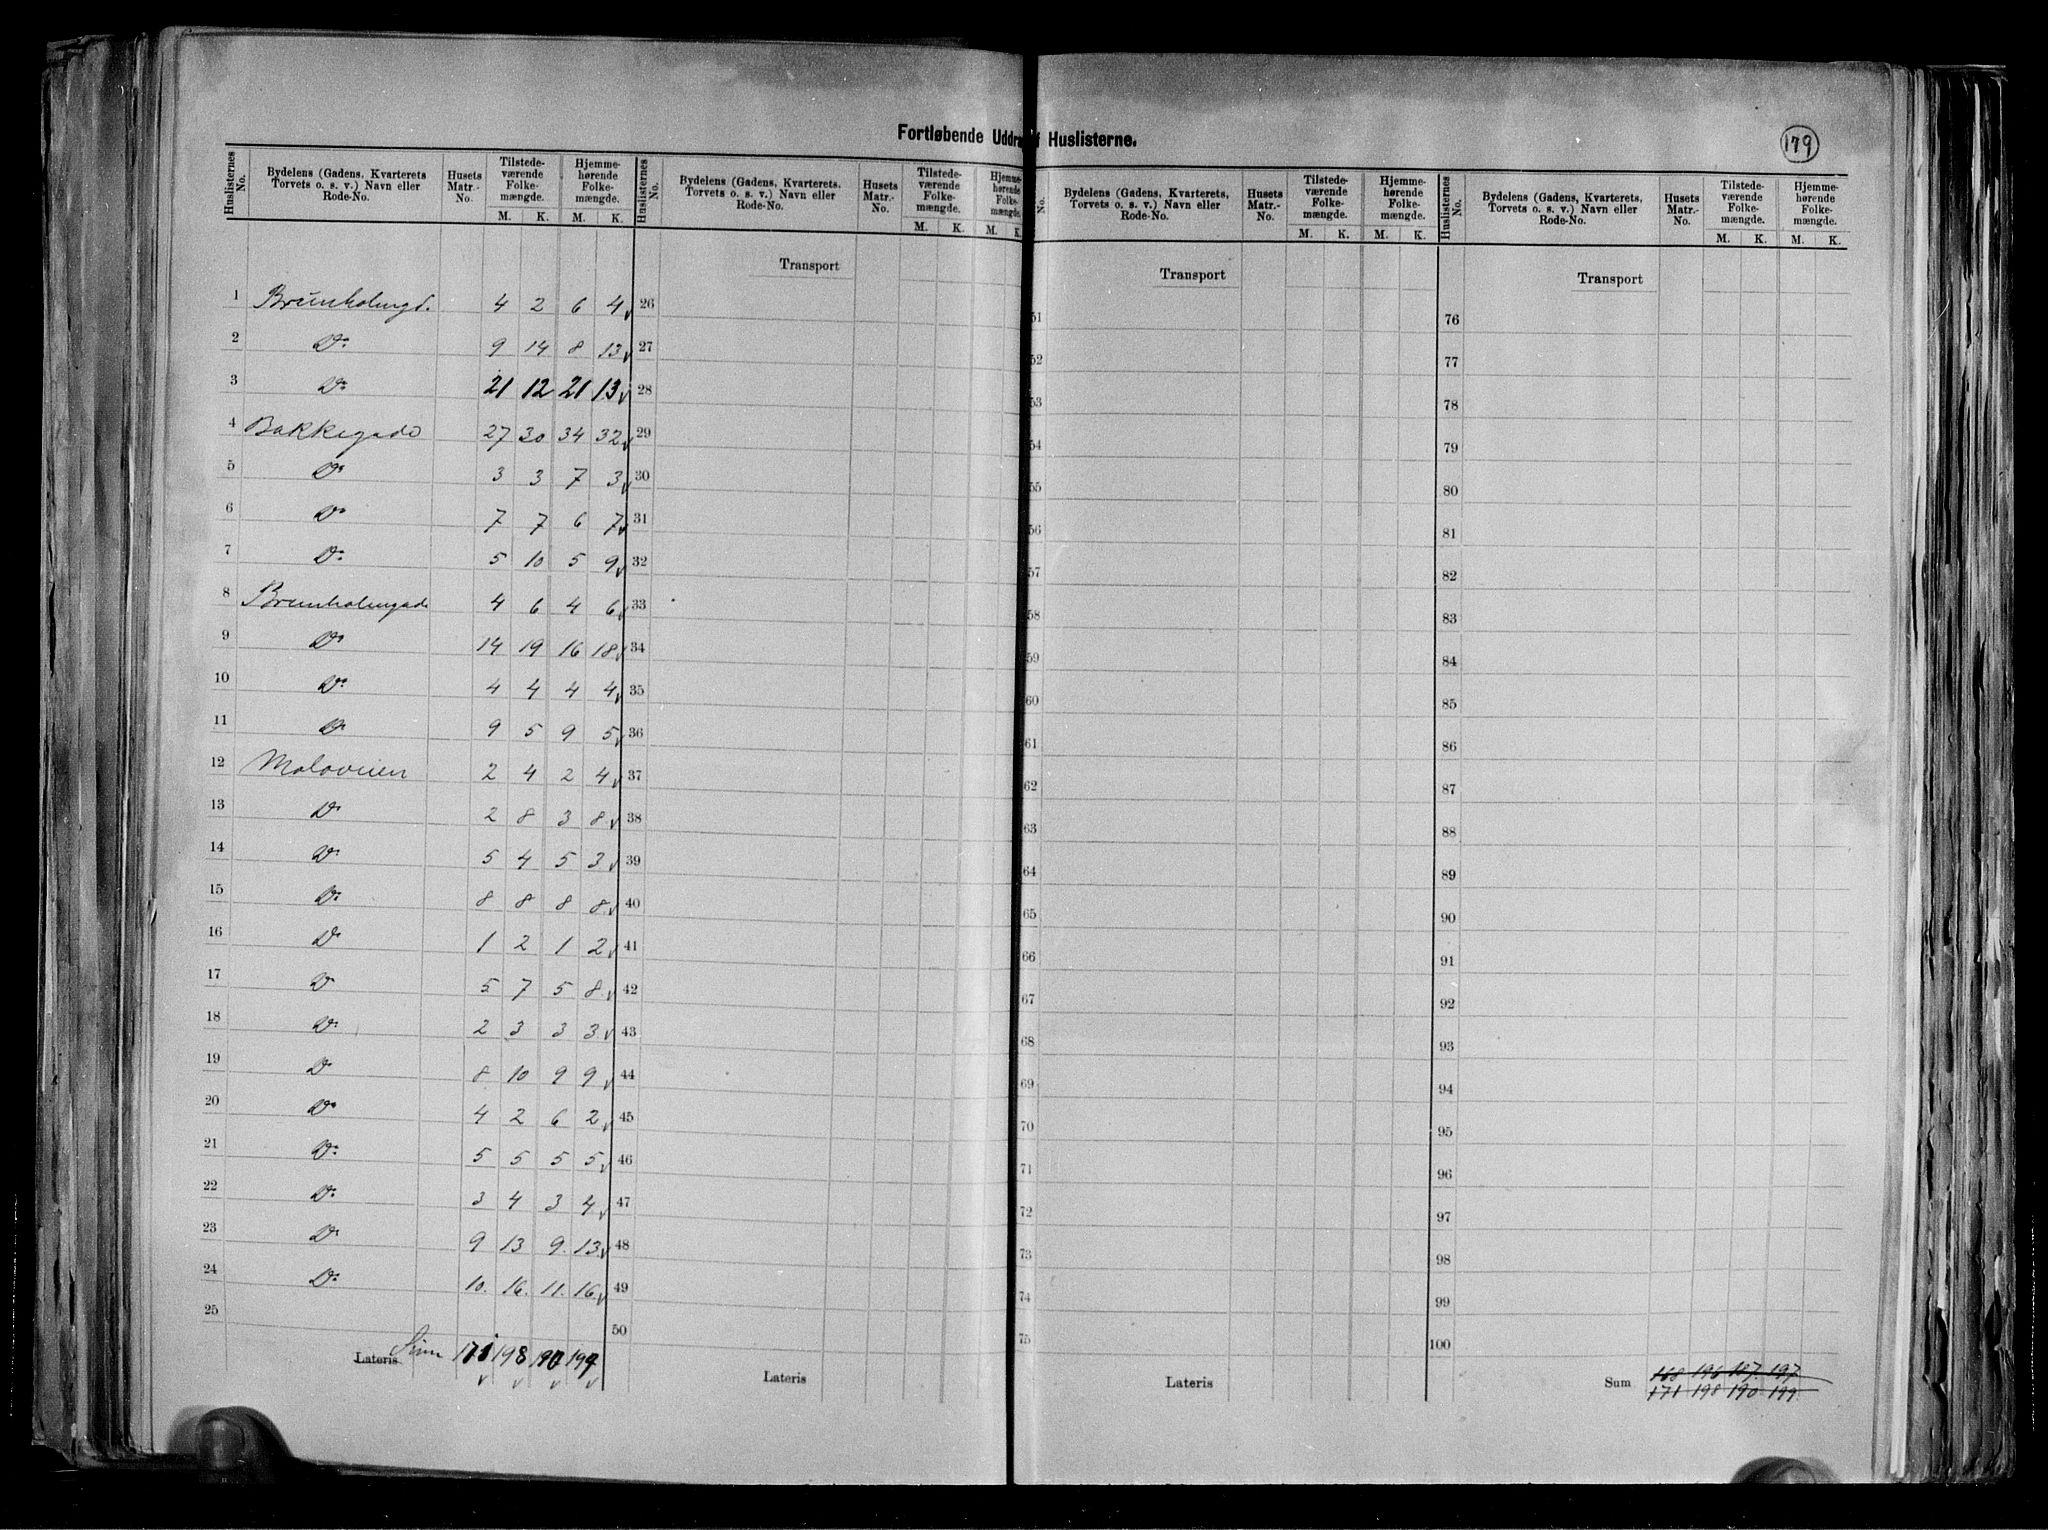 Fortløbende Uddra f Huslisterne.
179
Huslisternes No. | Bydelens (Gadens, Kvarterets Torvets o. s. v.) Navn eller Rode-No. | Husets Matr.-No. | Tilstede-værende Folke-mængde. M. K. | Hjemme-hørende Folke-mængde. M. K.
Huslisternes No. | Bydelens (Gadens, Kvarterets, Torvets o. s. v.) Navn eller Rode-No. | Husets Matr.-No. | Tilstede-værende Folke-mængde. M. K. | Hjemme-hørende Folke-mængde. M. K.
No. | Bydelens (Gadens, Kvarterets, Torvets o. s. v.) Navn eller Rode-No. | Husets Matr.-No. | Tilstede-værende Folke-mængde. M. K. | Hjemme-hørende Folke-mængde. M. K.
Huslisternes No. | Bydelens (Gadens, Kvarterets, Torvets o. s. v.) Navn eller Rode-No. | Husets Matr.-No. | Tilstede-værende Folke-mængde. M. K. | Hjemme-hørende Folke-mængde. M. K.
Transport Transport Transport
1 Brunholmgd. 4 2 6 4 26 51 76
2 Do 9 14 8 13 27 52 77
3 Do 21 12 21 13 28 53 78
4 Bakkegade 27 30 34 32 29 54 79
5 Do 3 3 7 3 30 55 80
6 Do 7 7 6 7 31 56 81
7 Do 5 10 5 9 32 57 82
8 Brunholmgade 4 6 4 6 33 58 83
9 Do 14 19 16 18 34 59 84
10 Do 4 4 4 4 35 60 85
11 Do 9 5 9 5 36 61 86
12 Moloveien 2 4 2 4 37 62 87
13 Do 2 8 3 8 38 63 88
14 Do 5 4 5 3 39 64 89
15 Do 8 8 8 8 40 65 90
16 Do 1 2 1 2 41 66 91
17 Do 5 7 5 8 42 67 92
18 Do 2 3 3 3 43 68 93
19 Do 8 10 9 9 44 69 94
20 Do 4 2 6 2 45 70 95
21 Do 5 5 5 5 46 71 96
22 Do 3 4 3 4 47 72 97
23 Do 9 13 9. 13 48 73 98
24 Do 10. 16. 11. 16. 49 74 99
25 50 75 100
Lateris Sum 171 198 190 199
Lateris Lateris Sum 168 196 187. 197
171 198 190 199.